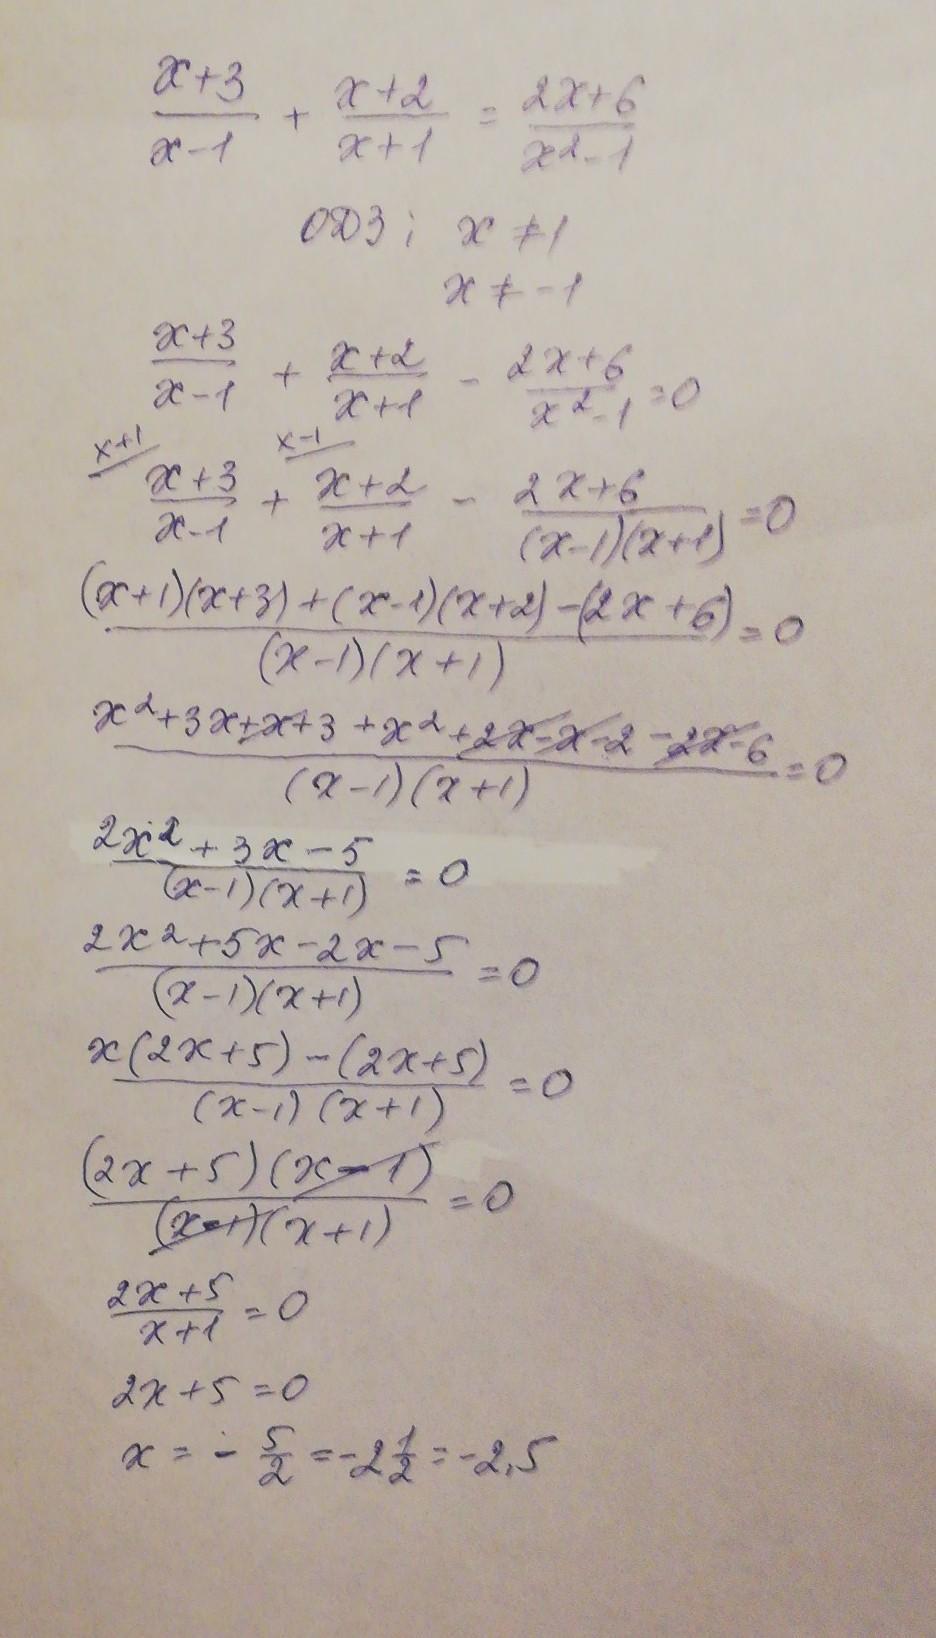 (x+3)/(x-1) + (x+2)/(x+1) = (2x+6)/(x²-1)
ОДЗ: x ≠ 1
x ≠ -1
(x+3)/(x-1) + (x+2)/(x+1) - (2x+6)/(x²-1) = 0
x+1 x-1
(x+3)/(x-1) + (x+2)/(x+1) - (2x+6)/((x-1)(x+1)) = 0
((x+1)(x+3)+(x-1)(x+2)-(2x+6))/((x-1)(x+1)) = 0
(x²+3x+x+3+x²+2x-x-2-2x-6)/((x-1)(x+1)) = 0
(2x²+3x-5)/((x-1)(x+1)) = 0
(2x²+5x-2x-5)/((x-1)(x+1)) = 0
(x(2x+5)-(2x+5))/((x-1)(x+1)) = 0
((2x+5)(x-1))/((x-1)(x+1)) = 0
(2x+5)/(x+1) = 0
2x+5=0
x = -5/2 = -2 1/2 = -2,5